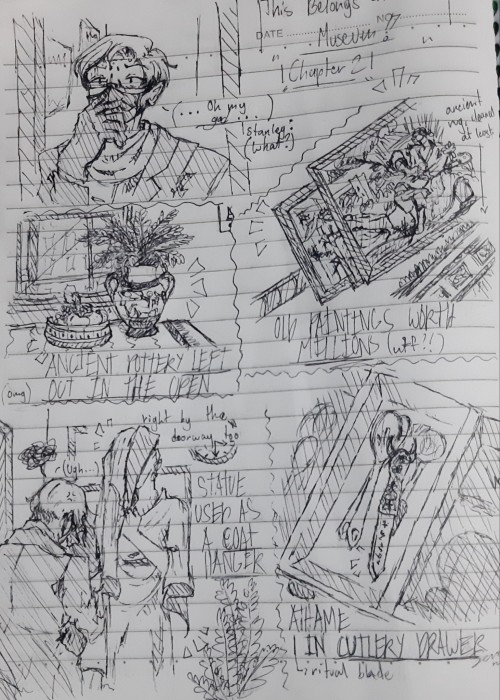 This Belongs in a
DATE NO.
Museum!
Chapter 2!
(... Oh my
god ...)
Stanley:
(what?)
ancient
my
at least
OLD PAINTINGS WORTH
MILLIONS (wtf?!)
ANCIENT POTTERY LEFT
(omg) OUT IN THE OPEN
right by the
doorway, too
(Ugh...)
STATUE
USED AS
A COAT
HANGER
ATHAME
IN CUTLERY DRAWER
ritual blade